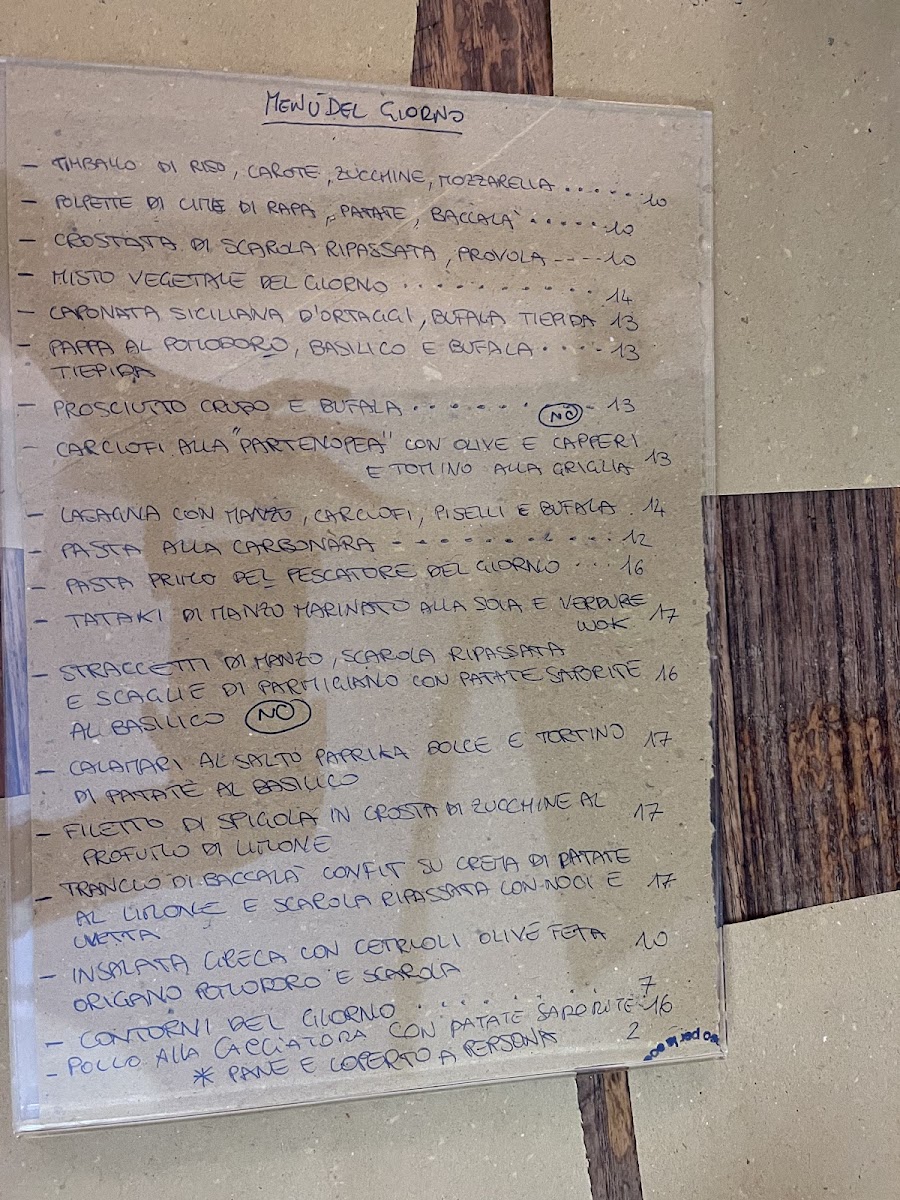 MENÙ DEL GIORNO
- TIMBALLO DI RISO, CAROTE, ZUCCHINE, MOZZARELLA ...... 10
- POLPETTE DI CIME DI RAPA, PATATE, BACCALÀ ...... 10
- CROSTATA DI SCAROLA RIPASSATA, PROVOLA ---- 10
- MISTO VEGETALE DEL GIORNO .......... 14
- CAPONATA SICILIANA D'ORTAGGI, BUFALA TIEPIDA 13
- PAPPA AL POMODORO, BASILICO E BUFALA .... 13
TIEPIDA
- PROSCIUTTO CRUDO E BUFALA ...... NO - 13
- CARCIOFI ALLA "PARTENOPEA" CON OLIVE E CAPPERI
E TOMINO ALLA GRIGLIA 13
- LASAGNA CON MANZO, CARCIOFI, PISELLI E BUFALA . 14
- PASTA ALLA CARBONARA - - - - - - . . . . 12
- PASTA PRIMO DEL PESCATORE DEL GIORNO ... 16
- TATAKI DI MANZO MARINATO ALLA SOIA E VERDURE 17
WOK
- STRACCETTI DI MANZO, SCAROLA RIPASSATA
E SCAGLIE DI PARMIGIANO CON PATATE SAPORITE 16
AL BASILICO NO
- CALAMARI AL SALTO PAPRIKA DOLCE E TORTINO 17
DI PATATE AL BASILICO
- FILETTO DI SPIGOLA IN CROSTA DI ZUCCHINE AL 17
PROFUMO DI LIMONE
- TRANCIO DI BACCALÀ CONFIT SU CREMA DI PATATE
AL LIMONE E SCAROLA RIPASSATA CON NOCI E 17
UVETTA
- INSALATA GRECA CON CETRIOLI OLIVE FETA 10
ORIGANO POMODORO E SCAROLA
- CONTORNI DEL GIORNO ........ 7
- POLLO ALLA CACCIATORA CON PATATE SAPORITE 16
* PANE E COPERTO A PERSONA 2